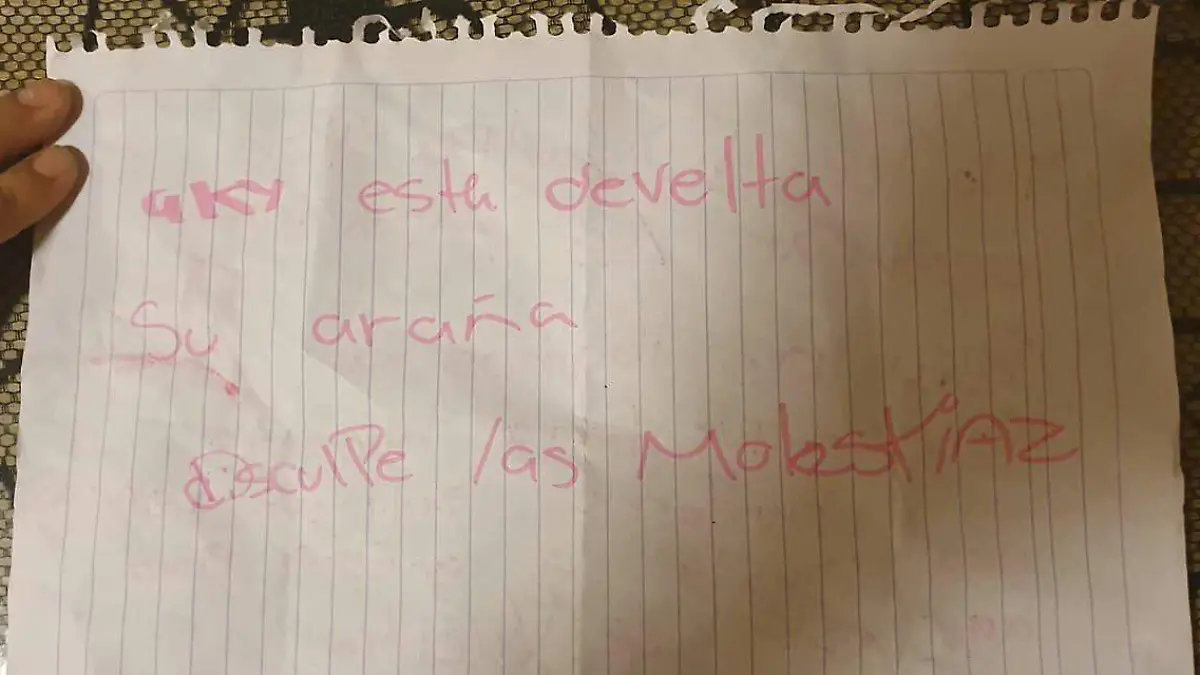 aKY esta develta
Su araña
disculPe las MolestiAZ